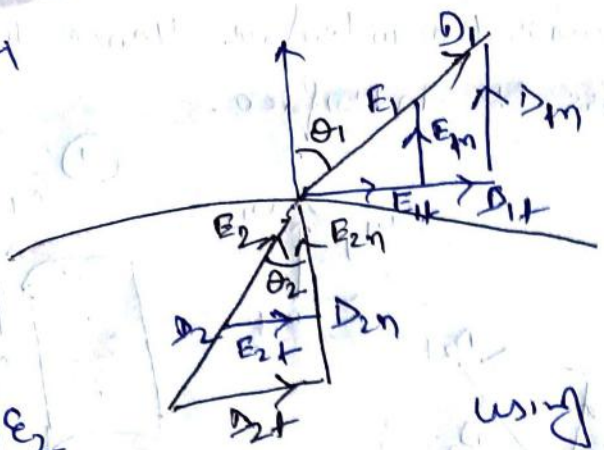 D₁
E₁
θ₁
E₁n
D₁n
E₁t
D₁t
E₂
E₂n
θ₂
D₂
E₂t
D₂n
D₂t
ε₂
using